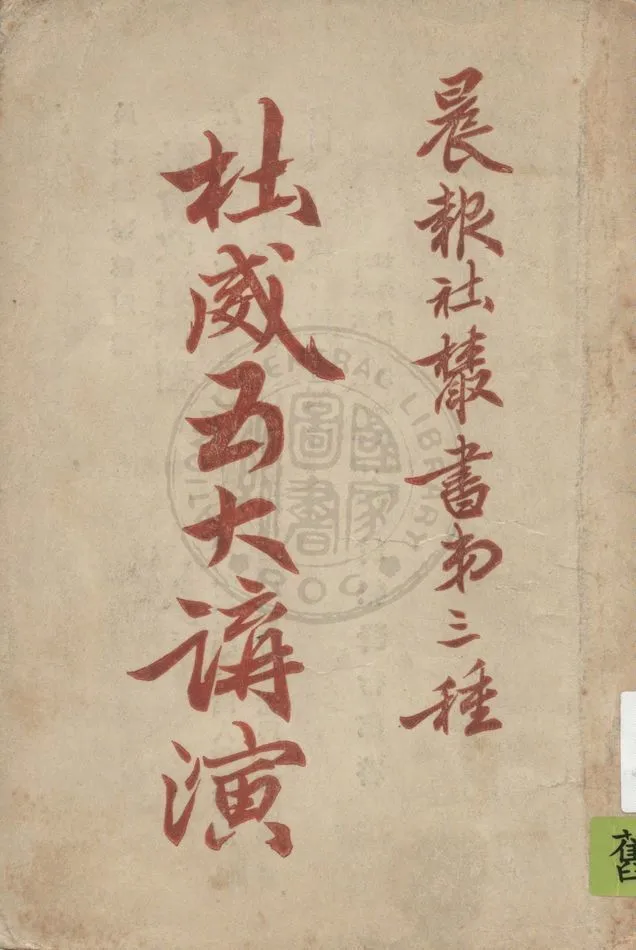 晨報社叢書第三種
杜威五大講演
NATIONAL CENTRAL LIBRARY
國家圖書
舊